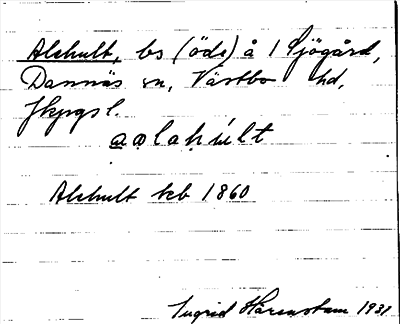 Alshult, bs (öde) å 1 Sjögård,
Dannäs sn, Västbo hd,
Jkpgs l.
Alshult kb 1860
Ingrid Hårenstam 1931